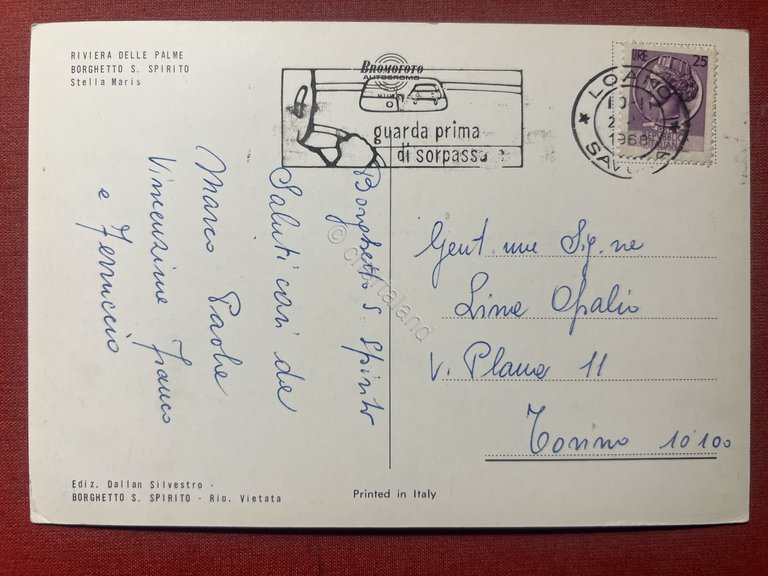 RIVIERA DELLE PALME
BORGHETTO S. SPIRITO
Stella Maris
BROMOFOTO
AUTODROMO
guarda prima
di sorpassa
LIRE 25
REPUBBLICA
ITALIANA
LOANO
1968
SAVONA
Borghetto S. Spirito
Saluti cari da
Marco Paola
Vincenzina Franco
e Ferruccio
Gent.me Sig.ne
Lina Opalio
V. Plana 11
Torino 10100
© cartaland
Ediz. Dallan Silvestro -
BORGHETTO S. SPIRITO - Rip. Vietata
Printed in Italy